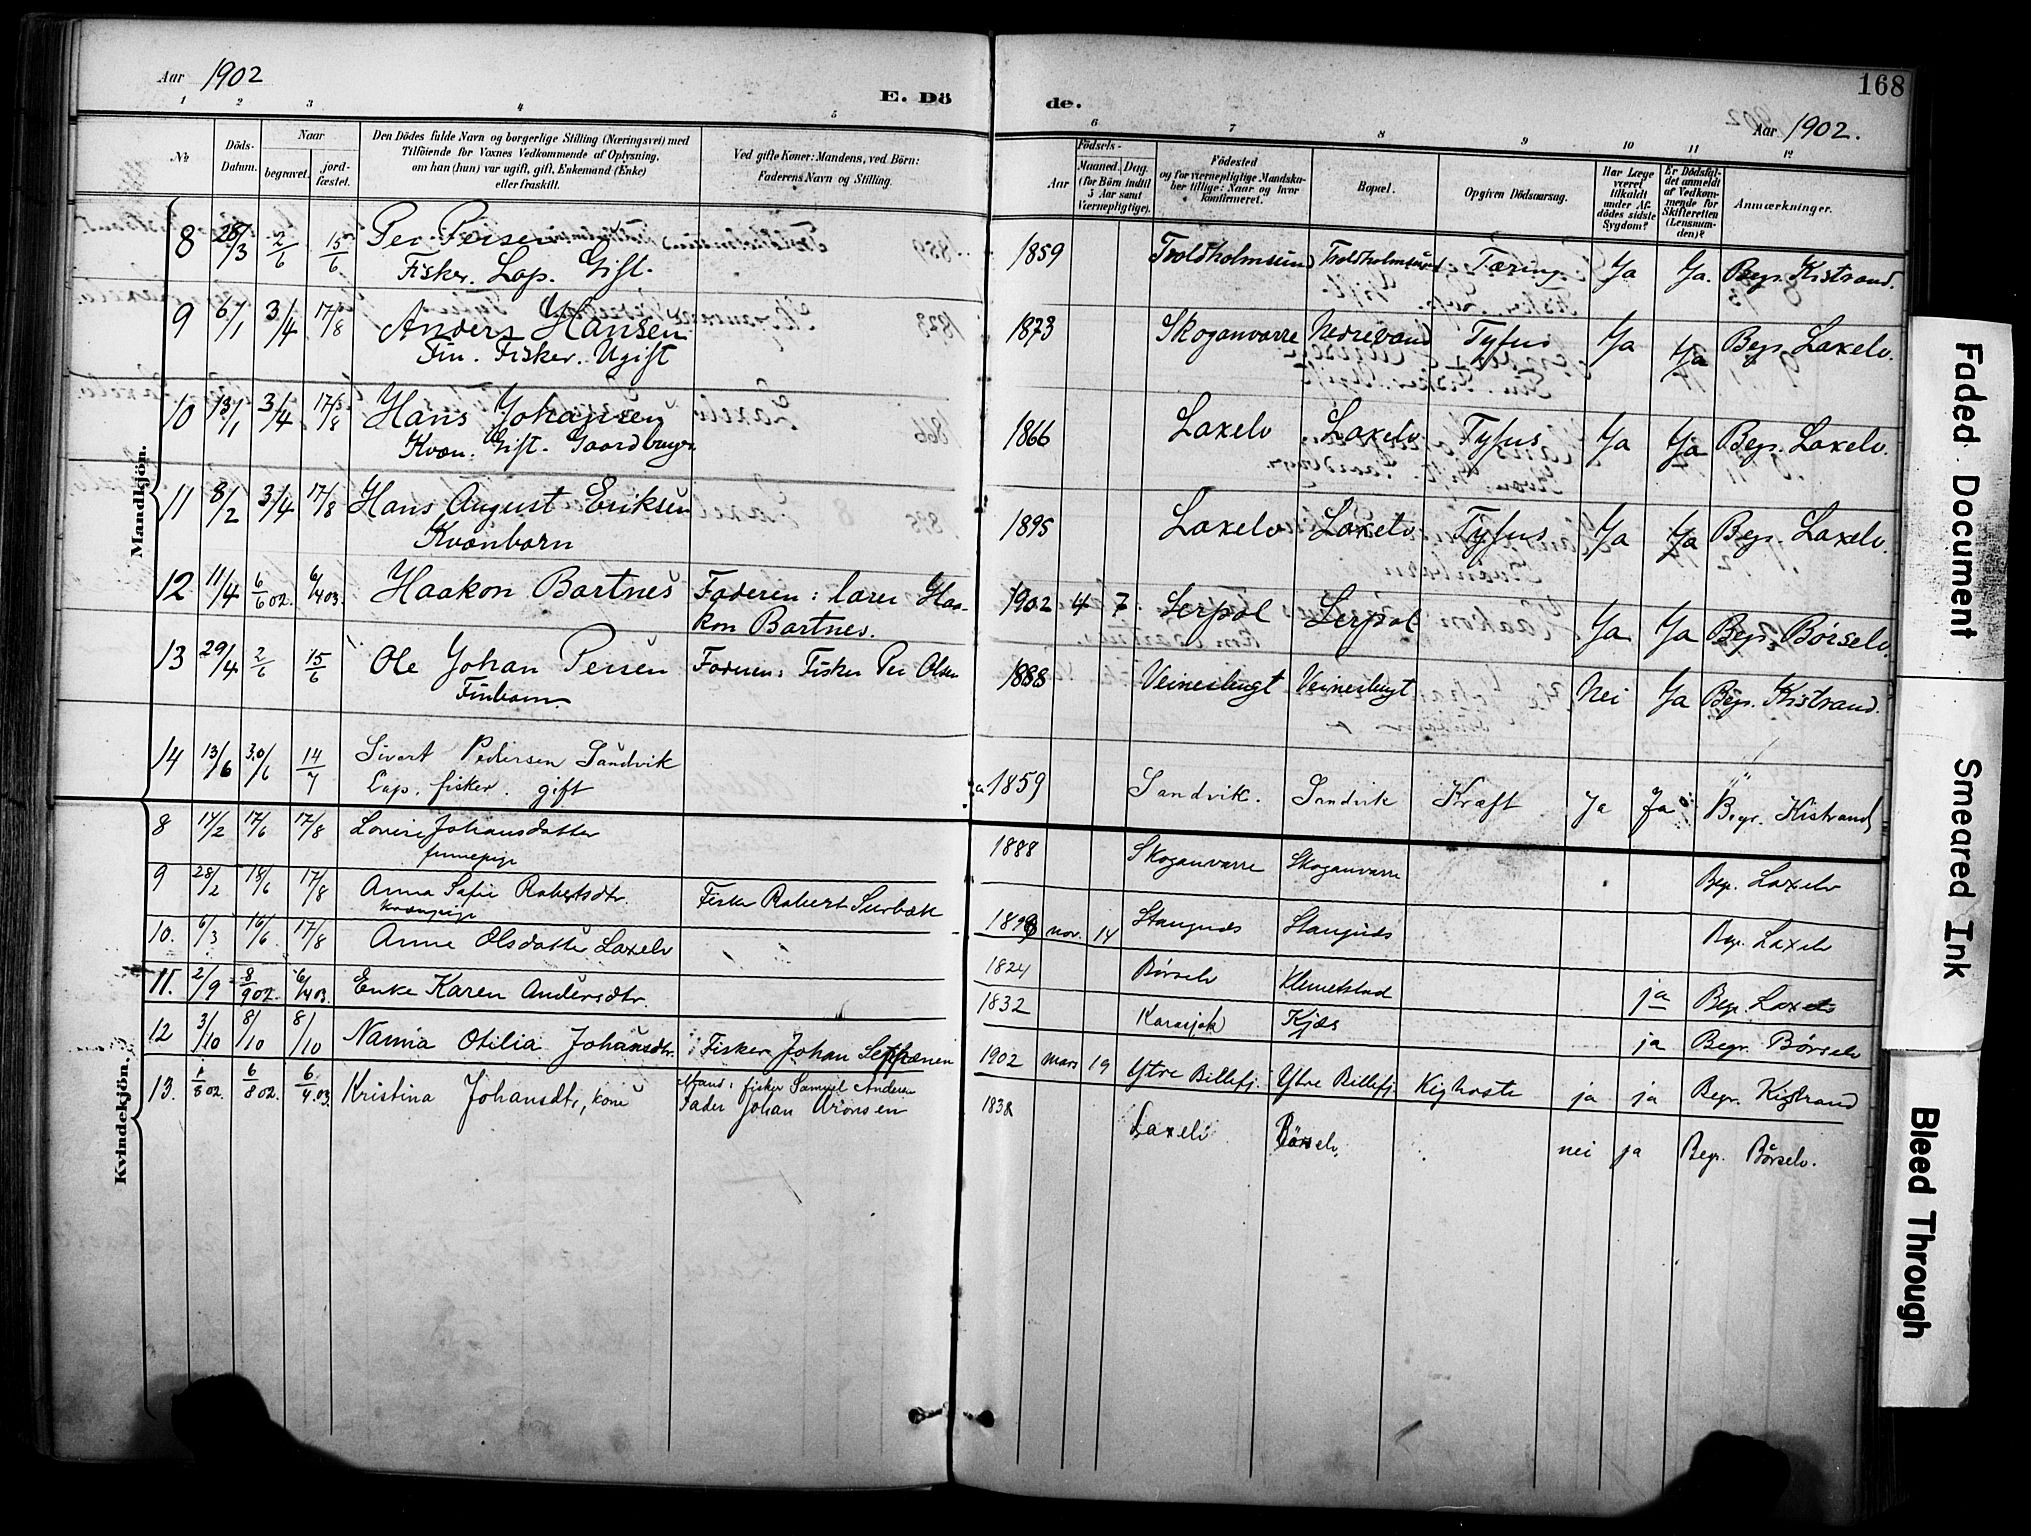 Aar 1902
E. Döde.
168
Aar 1902.
1 2 3 4 5 6 7 8 9 10 11 12
No
Döds-Datum.
Naar
begravet.
jord-fæstet.
Den Dödes fulde Navn og borgerlige Stilling (Næringsvei) med
Tilföiende for Voxnes Vedkommende af Oplysning,
om han (hun) var ugift, gift, Enkemand (Enke)
eller fraskilt.
Ved gifte Koner: Mandens, ved Børn:
Faderens Navn og Stilling.
Födsels-
Aar Maaned. Dag.
(for Börn indtil
5 Aar samt
Værnepligtige).
Födested
og for værnepligtige Mandska-
ber tillige: Naar og hvor
konfirmeret.
Bopæl.
Opgiven Dödsaarsag.
Har Læge
været
tilkaldt
under Af-
dödes sidste
Sygdom?
Er Dödsfal-
det anmeldt
af Vedkom-
mende for
Skifteretten
(Lensman-
den)?
Anmærkninger.
Mandkjön.
8 28/3 2/6 15/6 Per Persen 1859 Troldholmsund Troldholmsund Tæring Ja Ja. Begr. Kistrand.
Fisker. Lap. Gift.
9 6/1 3/4 17/8 Anders Hansen 1873 Skoganvarre Nedrevand Tyfus Ja Ja Begr. Laxelv.
Fin. Fisker. Ugift
10 13/1 3/4 17/8 Hans Johansen 1866 Laxelv Laxelv Tyfus Ja Ja Begr. Laxelv.
Kvæn. Gift. Gaardbruger
11 8/2 3/4 17/8 Hans August Eriksen 1895 Laxelv Laxelv Tyfus Ja Ja Begr. Laxelv.
Kvænbarn
12 11/4 6/6 02. 6/4 03. Haakon Bartnes Faderen: lærer Haa- 1902 4 7. Leirpol Leirpol Ja Ja Begr. Børselv.
kon Bartnes.
13 29/4 2/6 15/6 Ole Johan Persen Faderen: Fisker Per Olsen 1888 Veinesbugt Veinesbugt Nei Ja Begr. Kistrand.
Finbarn
14 13/6 30/6 14/7 Sivert Pedersen Sandvik 1859 Sandvik. Sandvik Kræft Ja Ja Begr. Kistrand
Lap. fisker. gift
Kvindekjön.
8 14/2 17/6 17/8 Lovise Johansdatter 1888 Skoganvarre Skoganvarre Begr. Laxelv
finnepige
9 28/2 18/6 17/8 Anna Sofie Robertsdtr. Fisker Robert nov. 14 Begr. Laxelv
kvænpige
10. 6/3 16/6 17/8 Anne Olsdatter Laxelv 1824 Børselv Klemetstad Begr. Laxelv
11. 2/9 8/9 02. 6/4 03. Enke Karen Andersdtr. 1832 Karasjok Kjæs ja Begr. Børselv
12 3/10 8/10 8/10 Nanna Otilia Johansdtr. Fisker Johan Seppänen 1902 mars 19 Ytre Billefj. Ytre Billefj. Kighoste ja ja Begr. Kistrand
13. 1/8 02. 6/8 02. 6/4 03. Kristina Johansdtr, kone Mand: fisker Samuel Andersen 1838 Laxelv Børselv. nei ja Begr. Børselv.
Fader Johan Aronsen
Faded Document
Smeared Ink
Bleed Through